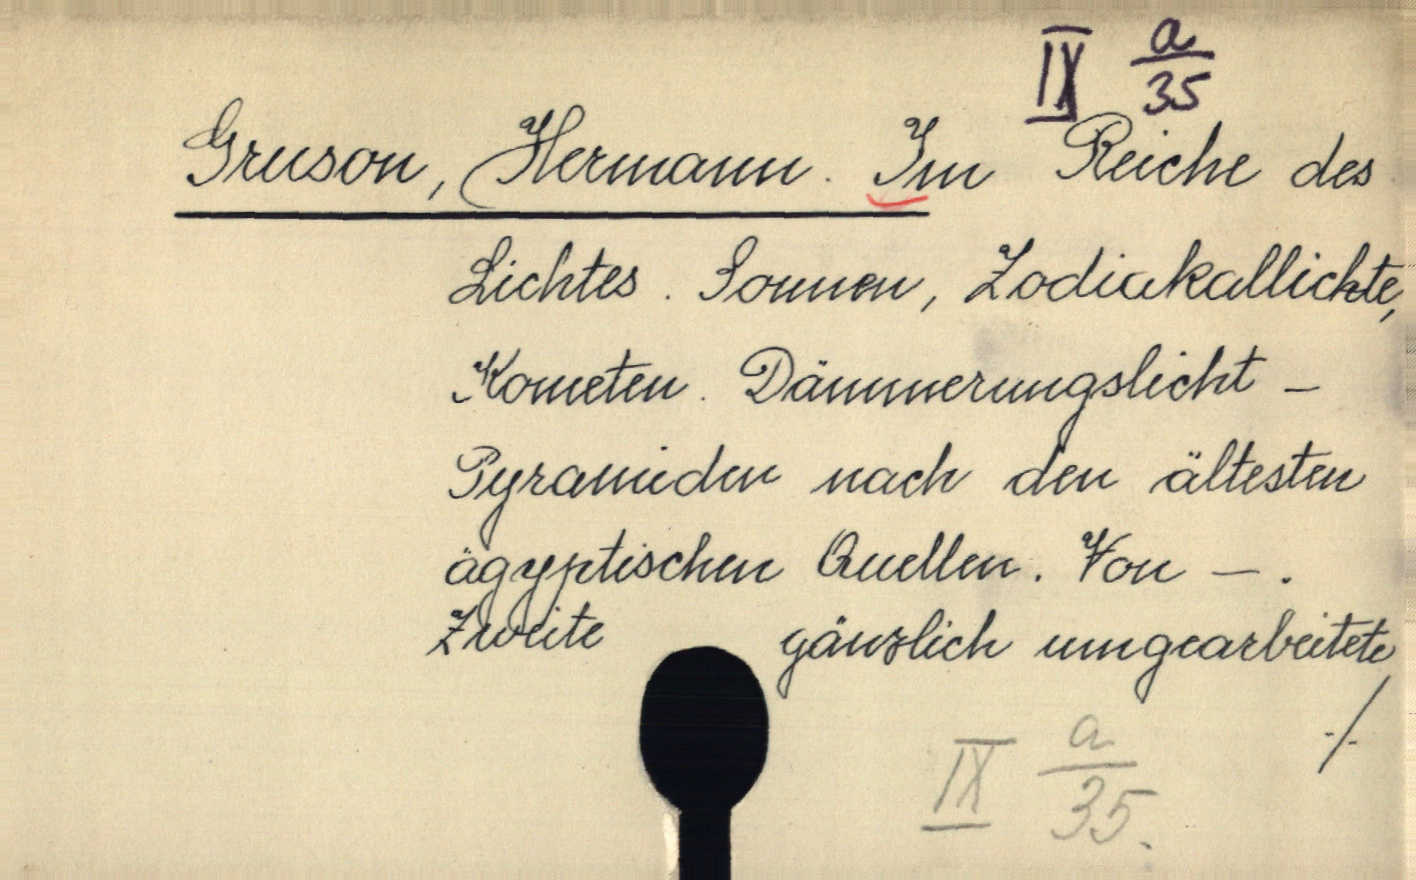 IX a/35
Gruson, Hermann. Im Reiche des
Lichtes. Sonnen, Zodiakallichte,
Kometen. Dämmerungslicht -
Pyramiden nach den ältesten
ägyptischen Quellen. Von - .
Zweite gänzlich umgearbeitete
./.
IX a/35.